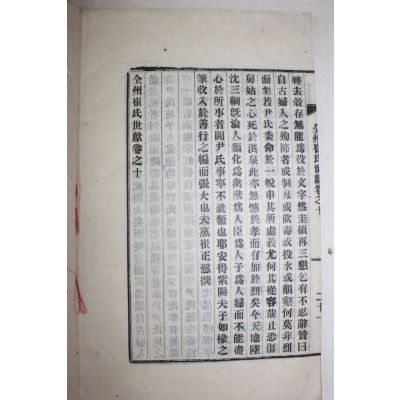 全州崔氏世獻卷之十
二十一
轉去殼存無能爲役於文字然圭碩再三懇乞有不忍辭贊曰
自古婦人之殉節者或制刃或飲毒或投水或顚壑何莫非烈
而至若尹氏委命於一帨申其所處義尤何其從容哉且恐傷
舅姑之心死於淇泉此亦無憾於孝而有加於烈矣今天地陸
沈三綱旣淪人類化爲禽獸爲人臣爲人子爲人婦而不能盡
心於所事者聞尹氏事寧不泚顙也耶安得紫陽夫子如椽之
筆收入於善行之編而張大也夫 崔正愨撰
全州崔氏世獻卷之十